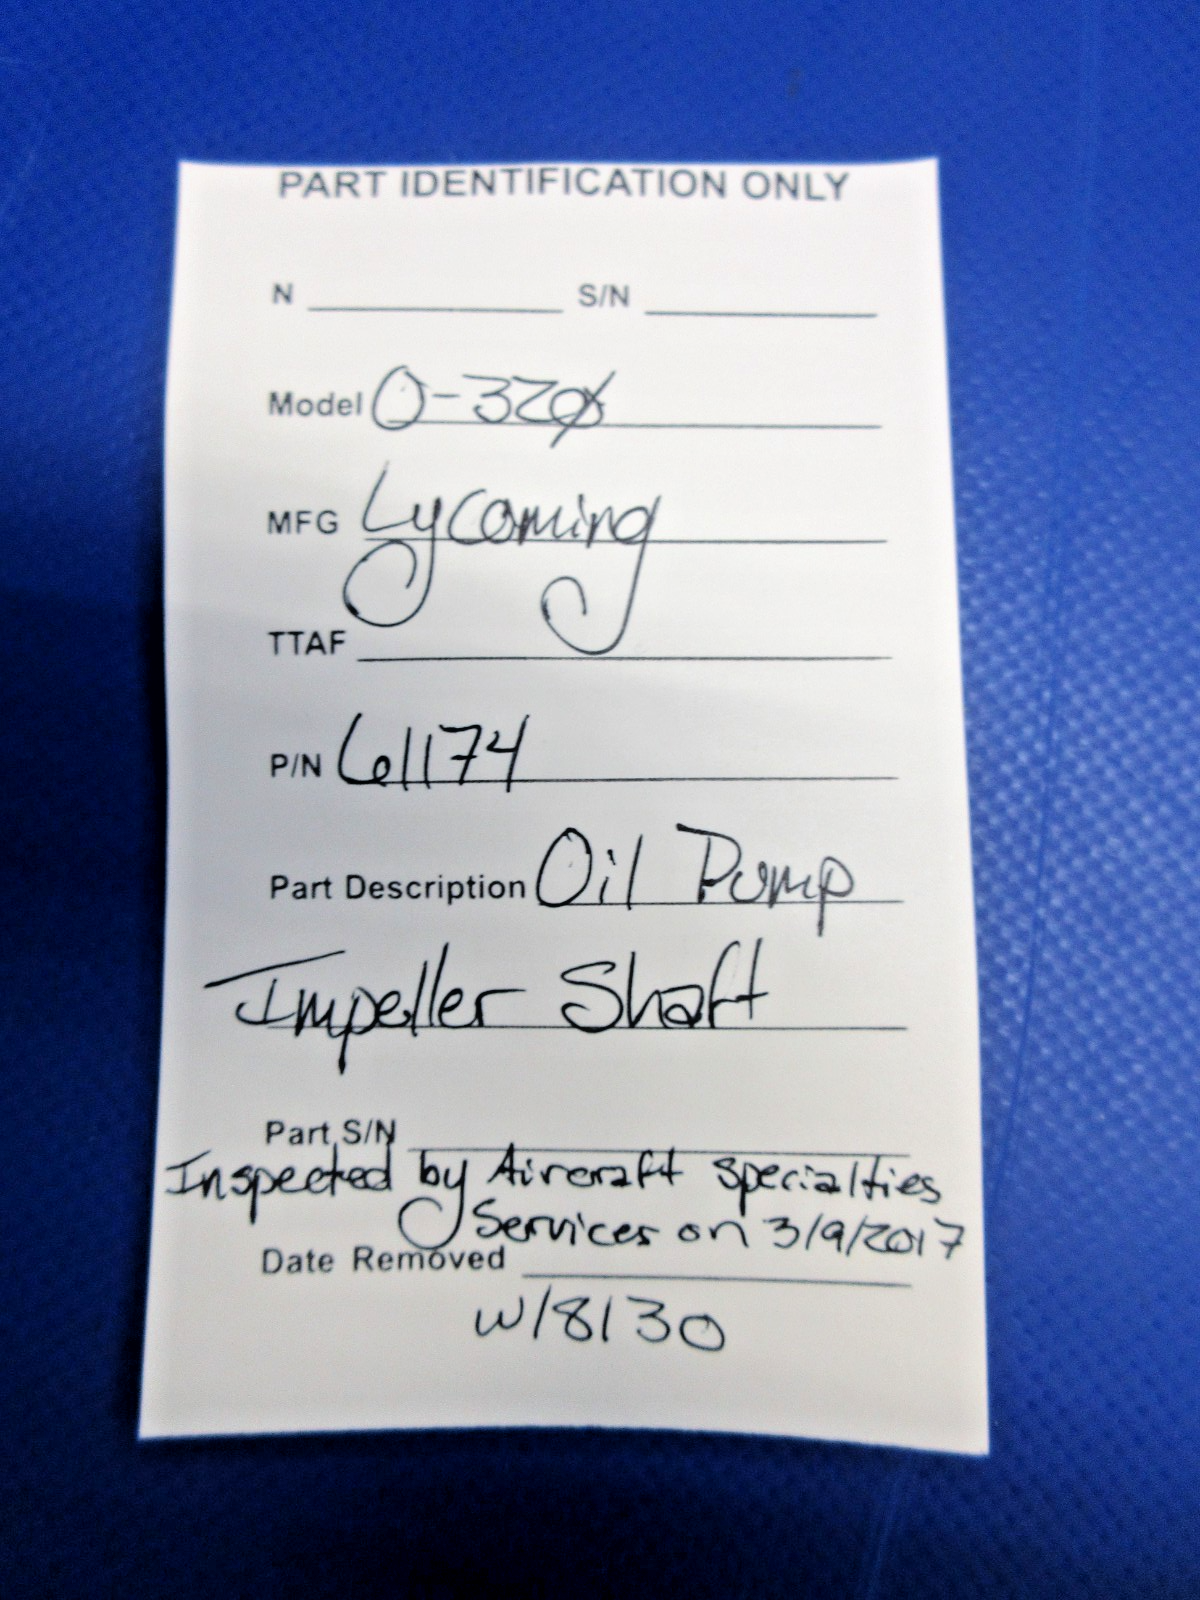 PART IDENTIFICATION ONLY
N S/N
Model O-320
MFG Lycoming
TTAF
P/N 61174
Part Description Oil Pump
Impeller Shaft
Part S/N
Inspected by Aircraft Specialties
Services on 3/9/2017
Date Removed
W/8130